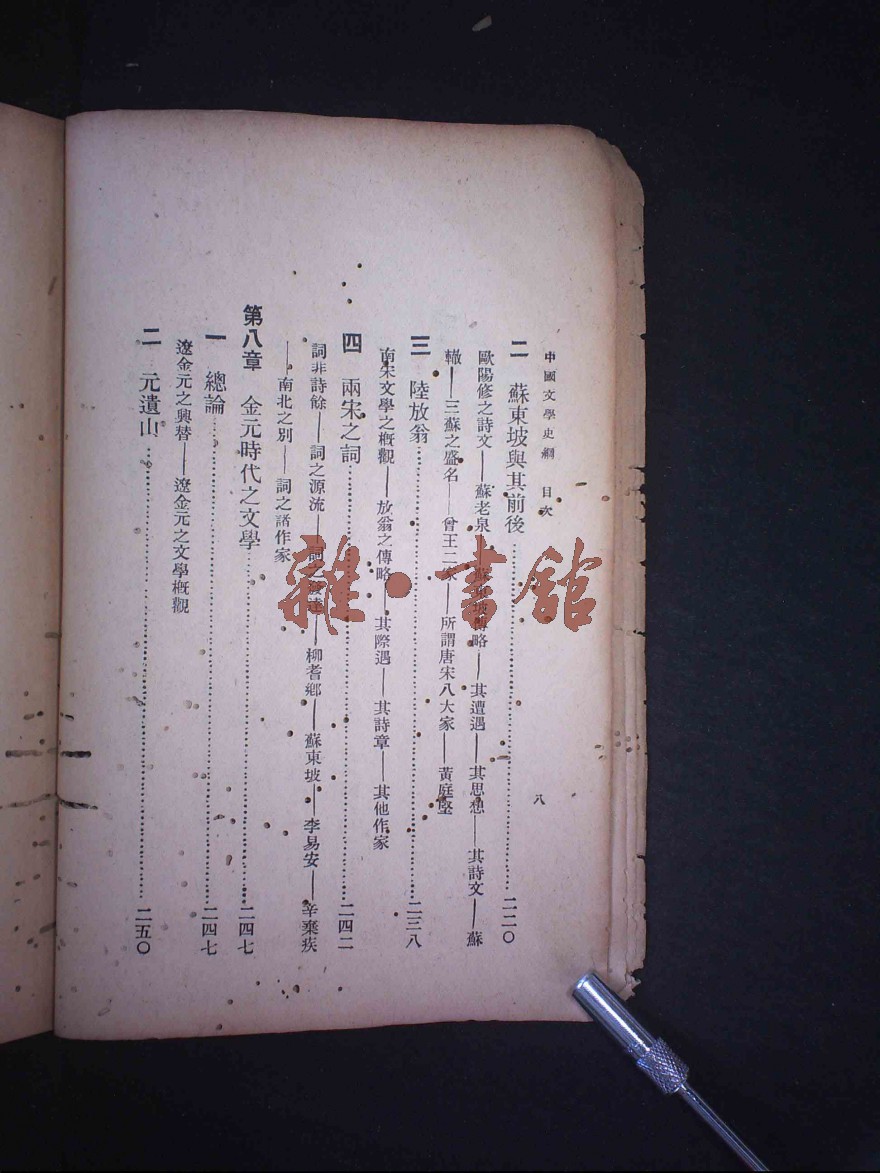 中國文學史綱　目次　八
二　蘇東坡與其前後……二二〇
歐陽修之詩文——蘇老泉——蘇東坡傳略——其遭遇——其思想——其詩文——蘇
轍——三蘇之盛名——曾王二家——所謂唐宋八大家——黃庭堅
三　陸放翁……二三八
南宋文學之概觀——放翁之傳略——其際遇——其詩章——其他作家
四　兩宋之詞……二四二
詞非詩餘——詞之源流——詞之發達——柳耆鄉——蘇東坡——李易安——辛棄疾
——南北之別——詞之諸作家
第八章　金元時代之文學……二四七
一　總論……二四七
遼金元之興替——遼金元之文學概觀
二　元遺山……二五〇
雜·書館